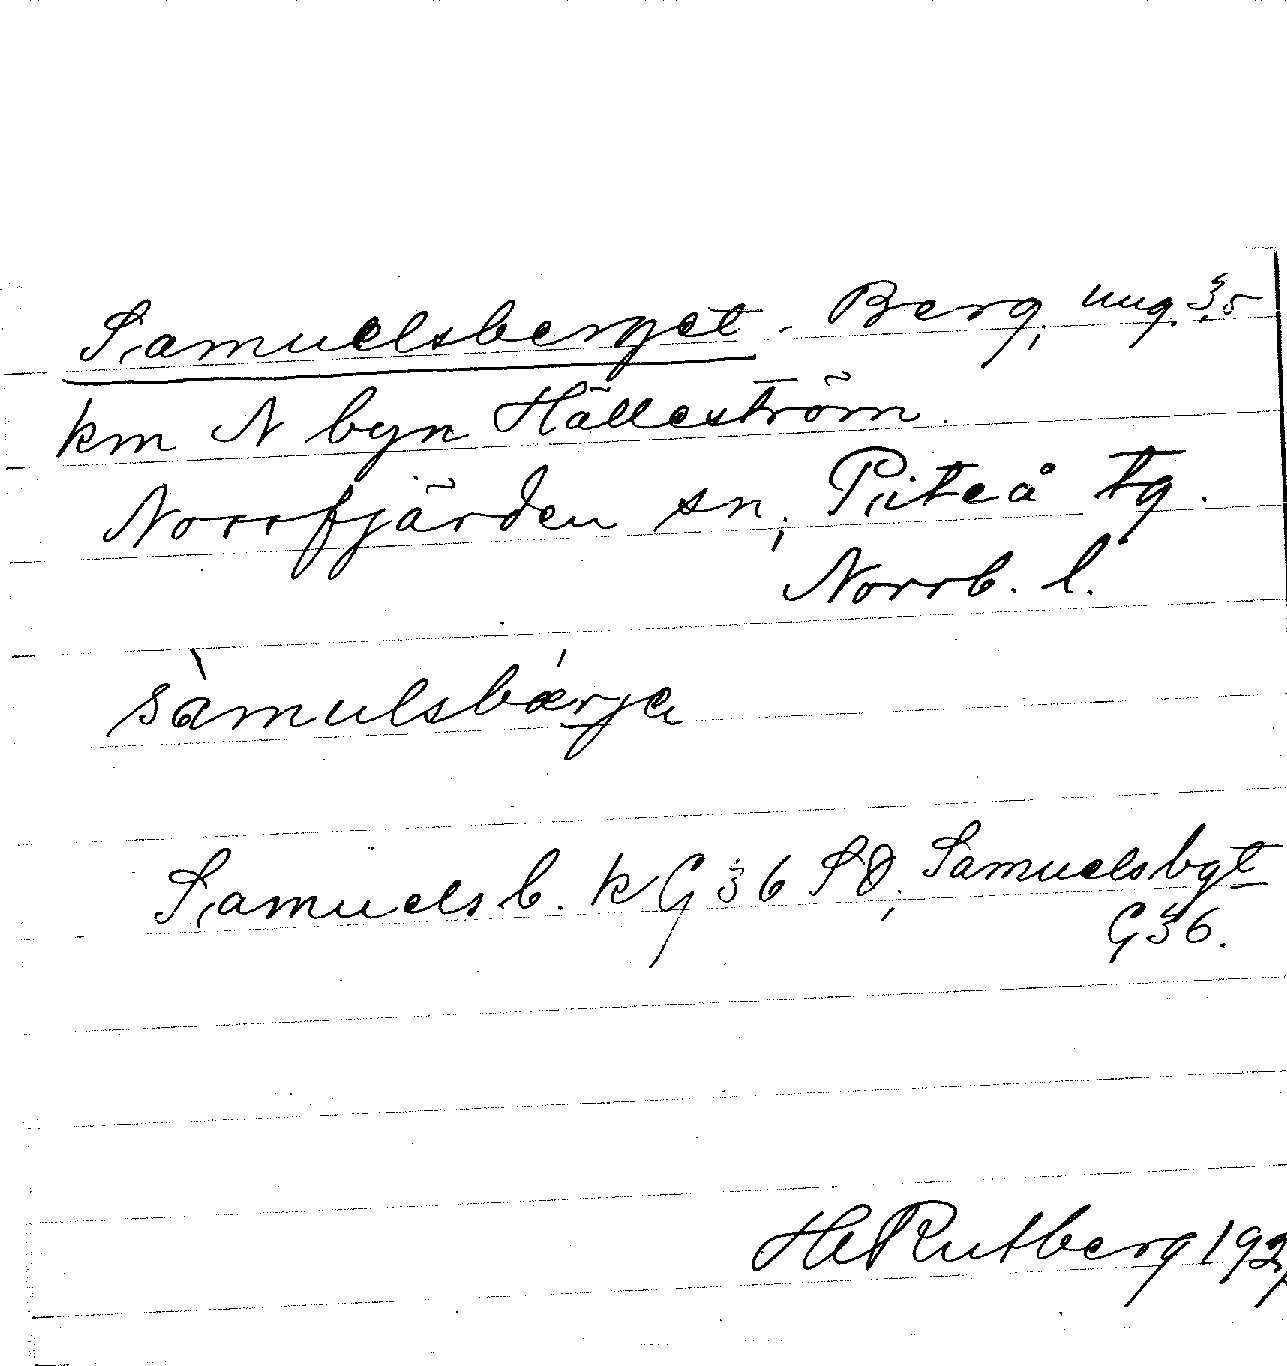 Samuelsberget. Berg, ung. 3,5
km N byn Hälleström.
Norrfjärden sn, Piteå tg.
Norrb. l.
sàmulsbǽrje
Samuelsb. k G 36 SO, Samuelsbgt
G36.
H Rutberg